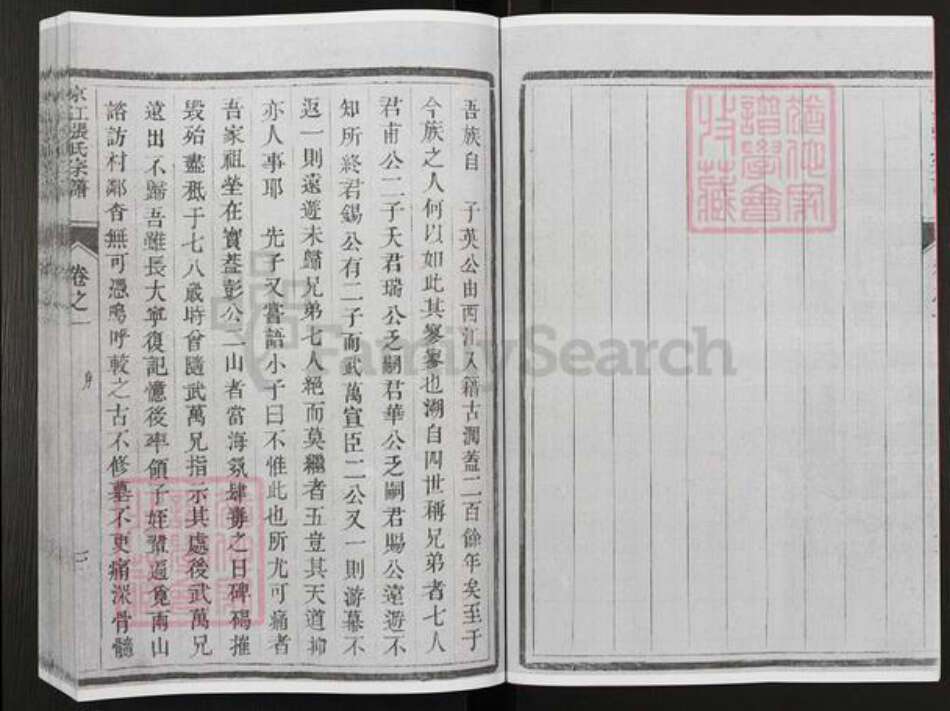 吾族自　子英公由西江入籍古潤蓋二百餘年矣至于
今族之人何以如此其寥寥也溯自四世稱兄弟者七人
君甫公二子夭君瑞公乏嗣君華公乏嗣君賜公遠遊不
知所終君錫公有二子而武萬宣臣二公又一則游幕不
返一則遠遊未歸兄弟七人絕而莫繼者五豈其天道抑
亦人事耶　先子又嘗語小子曰不惟此也所尤可痛者
吾家祖塋在寶蓋彭公二山者當海氛肆毒之日碑碣摧
毀殆盡秪于七八歲時曾隨武萬兄指示其處後武萬兄
遠出不歸吾雖長大寧復記憶後率領子姪輩遍覓兩山
諮訪村鄰杳無可憑嗚呼較之古不修墓不更痛深骨髓
京江張氏宗譜
卷之一
序
猶他家
譜學會
收藏
FamilySearch